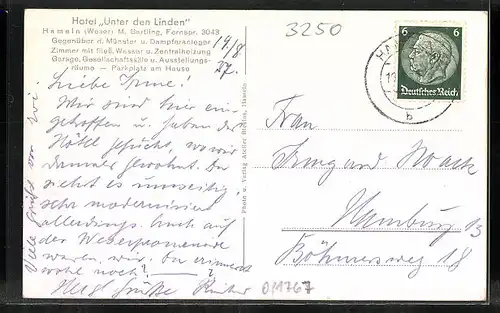 Hotel „Unter den Linden"
Hameln (Weser) M. Gertling, Fernspr. 3043
Gegenüber d. Münster u. Dampferanleger
Zimmer mit fließ. Wasser u. Zentralheizung
Garage, Gesellschaftssäle u. Ausstellungs-
räume — Parkplatz am Hause
14/8
37.
Liebe Irme!
Wir sind hier ein-
getroffen u. haben das
Hotel gesucht, wo wir
damals gewohnt. Da
sieht es unwseitig
sehr modernisiert
allerdings. Auch auf
der Weserpromenade
waren wir. Du erinnerst
wohl noch?
Herzl Grüße
Viele Grüße von
Photo u. Verlag
3250
6 6
Deutsches Reich
b
Frau
Irmgard Noack
Hamburg 13
Böhmersweg 18
011767